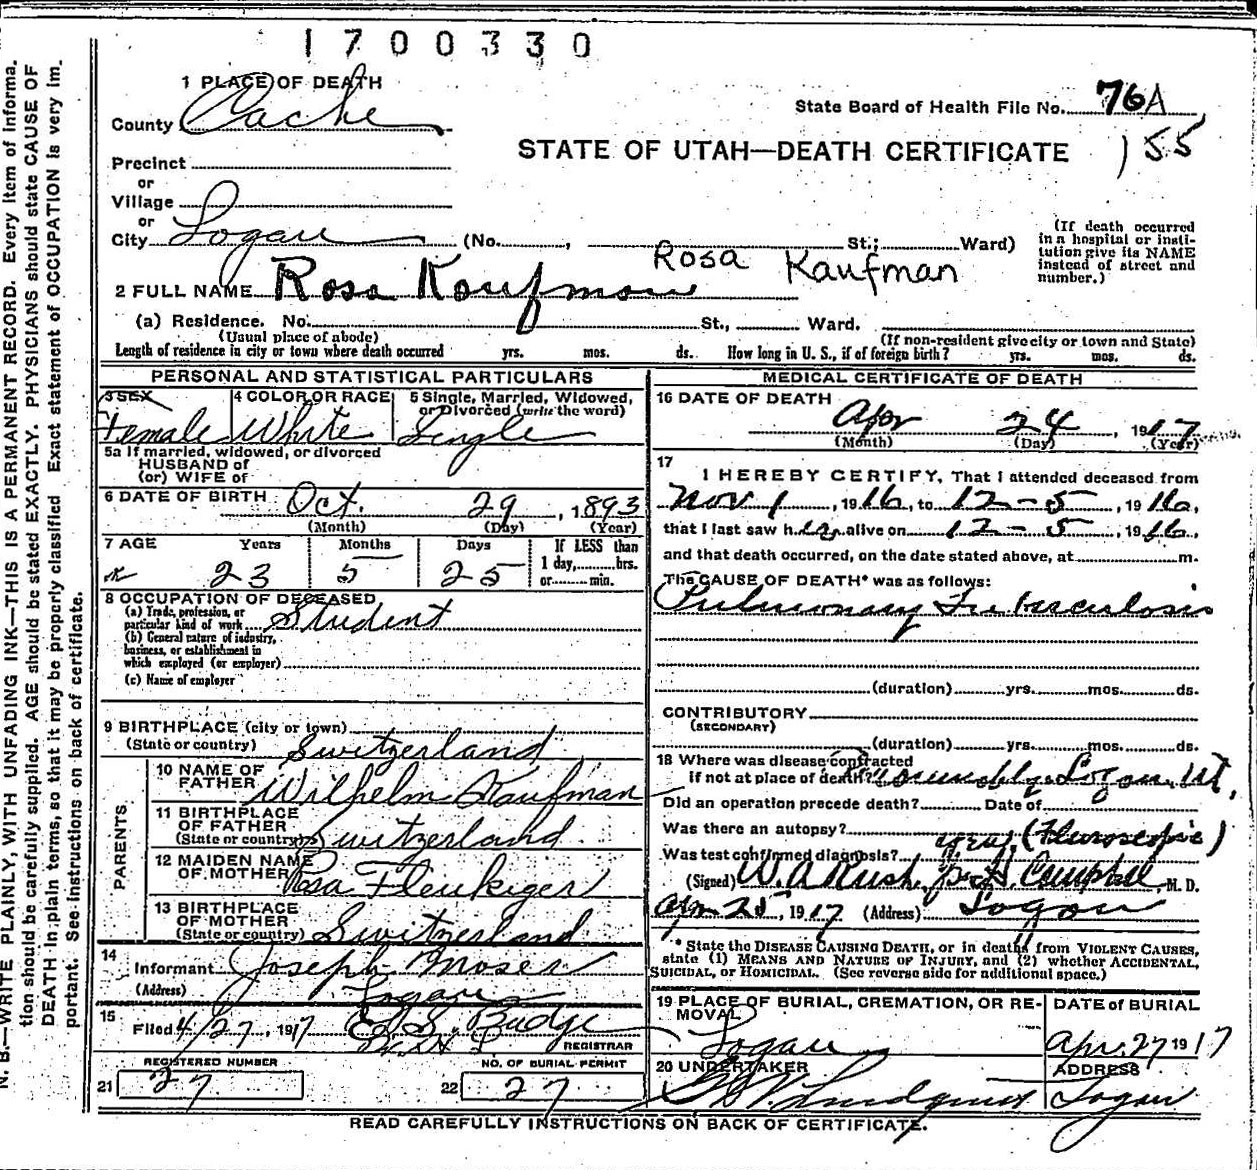 1700330
1 PLACE OF DEATH
State Board of Health File No. 76A
County Cache
STATE OF UTAH—DEATH CERTIFICATE 155
Precinct
or
Village
or
City Logan (No. , St.; Ward)
(If death occurred in a hospital or insti-
tution give its NAME
instead of street and
number.)
Rosa Kaufman
2 FULL NAME Rosa Kaufman
(a) Residence. No. St., Ward.
(Usual place of abode) (If non-resident give city or town and State)
Length of residence in city or town where death occurred yrs. mos. ds. How long in U. S., if of foreign birth? yrs. mos. ds.
PERSONAL AND STATISTICAL PARTICULARS
3 SEX 4 COLOR OR RACE 5 Single, Married, Widowed,
or Divorced (write the word)
Female White Single
5a If married, widowed, or divorced
HUSBAND of
(or) WIFE of
6 DATE OF BIRTH Oct. 29, 1893
(Month) (Day) (Year)
7 AGE Years Months Days If LESS than
1 day, hrs.
or min.
23 5 25
8 OCCUPATION OF DECEASED
(a) Trade, profession, or
particular kind of work Student
(b) General nature of industry,
business, or establishment in
which employed (or employer)
(c) Name of employer
9 BIRTHPLACE (city or town)
(State or country) Switzerland
PARENTS
10 NAME OF
FATHER Wilhelm Kaufman
11 BIRTHPLACE
OF FATHER
(State or country) Switzerland
12 MAIDEN NAME
OF MOTHER Rosa Fleukiger
13 BIRTHPLACE
OF MOTHER
(State or country) Switzerland
14
Informant Joseph Moser
(Address) Logan
15
Filed 4/27, 1917 Budge
REGISTRAR
REGISTERED NUMBER NO. OF BURIAL PERMIT
21 27 22 27
MEDICAL CERTIFICATE OF DEATH
16 DATE OF DEATH
Apr 24, 1917
(Month) (Day) (Year)
17
I HEREBY CERTIFY, That I attended deceased from
Nov 1, 1916, to 12-5, 1916,
that I last saw her alive on 12-5, 1916,
and that death occurred, on the date stated above, at m.
The CAUSE OF DEATH* was as follows:
Pulmonary Tuberculosis
(duration) yrs. mos. ds.
CONTRIBUTORY
(SECONDARY)
(duration) yrs. mos. ds.
18 Where was disease contracted
if not at place of death? Logan, Ut,
Did an operation precede death? Date of
Was there an autopsy?
Was test confirmed diagnosis? (Fluroscopic)
(Signed) W. A Rush, Campbell, M. D.
Apr 25, 1917 (Address) Logan
*State the DISEASE CAUSING DEATH, or in deaths from VIOLENT CAUSES,
state (1) MEANS AND NATURE OF INJURY, and (2) whether ACCIDENTAL,
SUICIDAL, or HOMICIDAL. (See reverse side for additional space.)
19 PLACE OF BURIAL, CREMATION, OR RE-
MOVAL DATE of BURIAL
Logan Apr. 27 1917
20 UNDERTAKER ADDRESS
Lindquist Logan
READ CAREFULLY INSTRUCTIONS ON BACK OF CERTIFICATE.
N. B.—WRITE PLAINLY, WITH UNFADING INK—THIS IS A PERMANENT RECORD. Every item of informa-
tion should be carefully supplied. AGE should be stated EXACTLY. PHYSICIANS should state CAUSE OF
DEATH in plain terms, so that it may be properly classified. Exact statement of OCCUPATION is very im-
portant. See instructions on back of certificate.